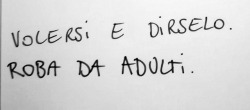 VOLERSI E DiRSELO.
ROBA DA ADULTi.